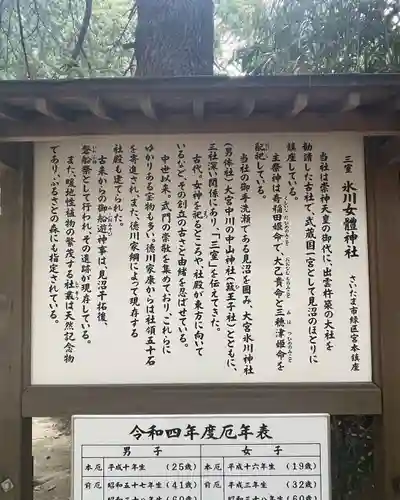 三室 氷川女體神社
さいたま市緑区宮本鎮座
当社は崇神天皇の御代に、出雲杵築の大社を
勧請した古社で、武蔵国一宮として見沼のほとりに
鎮座している。
主祭神は奇稲田姫命で、大己貴命と三穂津姫命を
配祀している。
当社の御手洗瀬である見沼を囲み、大宮氷川神社
(男体社)大宮中川の中山神社(簸王子社)とともに、
三社深い関係にあり、「三室」を伝えてきた。
古代、女神を祀るところや、社殿が東方に向いて
いるなど、その創立の古さと由緒を忍ばせている。
中世以来、武門の崇社を集めており、これらに
ゆかりある宝物も多い。徳川家康からは社領五十石
を寄進され、また、徳川家綱によって現存する
社殿も建てられた。
古来からの御船遊神事は、見沼干拓後、
磐船祭として行われ、その遺跡が現存している。
また、暖地性植物の繁茂する社叢は天然記念物
であり、ふるさとの森にも指定されている。
令和四年度厄年表
男子 女子
本厄 平成十年生 (25歳) 本厄 平成十六年生 (19歳)
前厄 昭和五十七年生 (41歳) 前厄 平成三年生 (32歳)
昭和三十八年生 (60歳) 昭和三十八年生 (60歳)